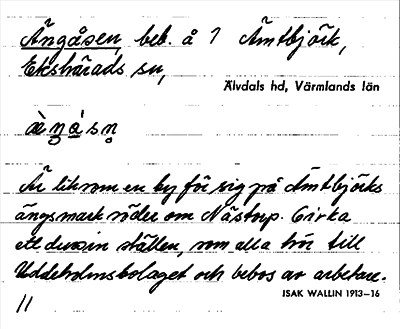 Ängåsen, beb. å ? Ämtbjörk,
Ekshärads sn,
Älvdals hd, Värmlands län
Är liksom en by för sig på Ämtbjörks
ängsmark söder om Nästorp. Cirka
ett dussin ställen, som alla hör till
Uddeholmsbolaget och bebos av arbetare.
ISAK WALLIN 1913–16
11